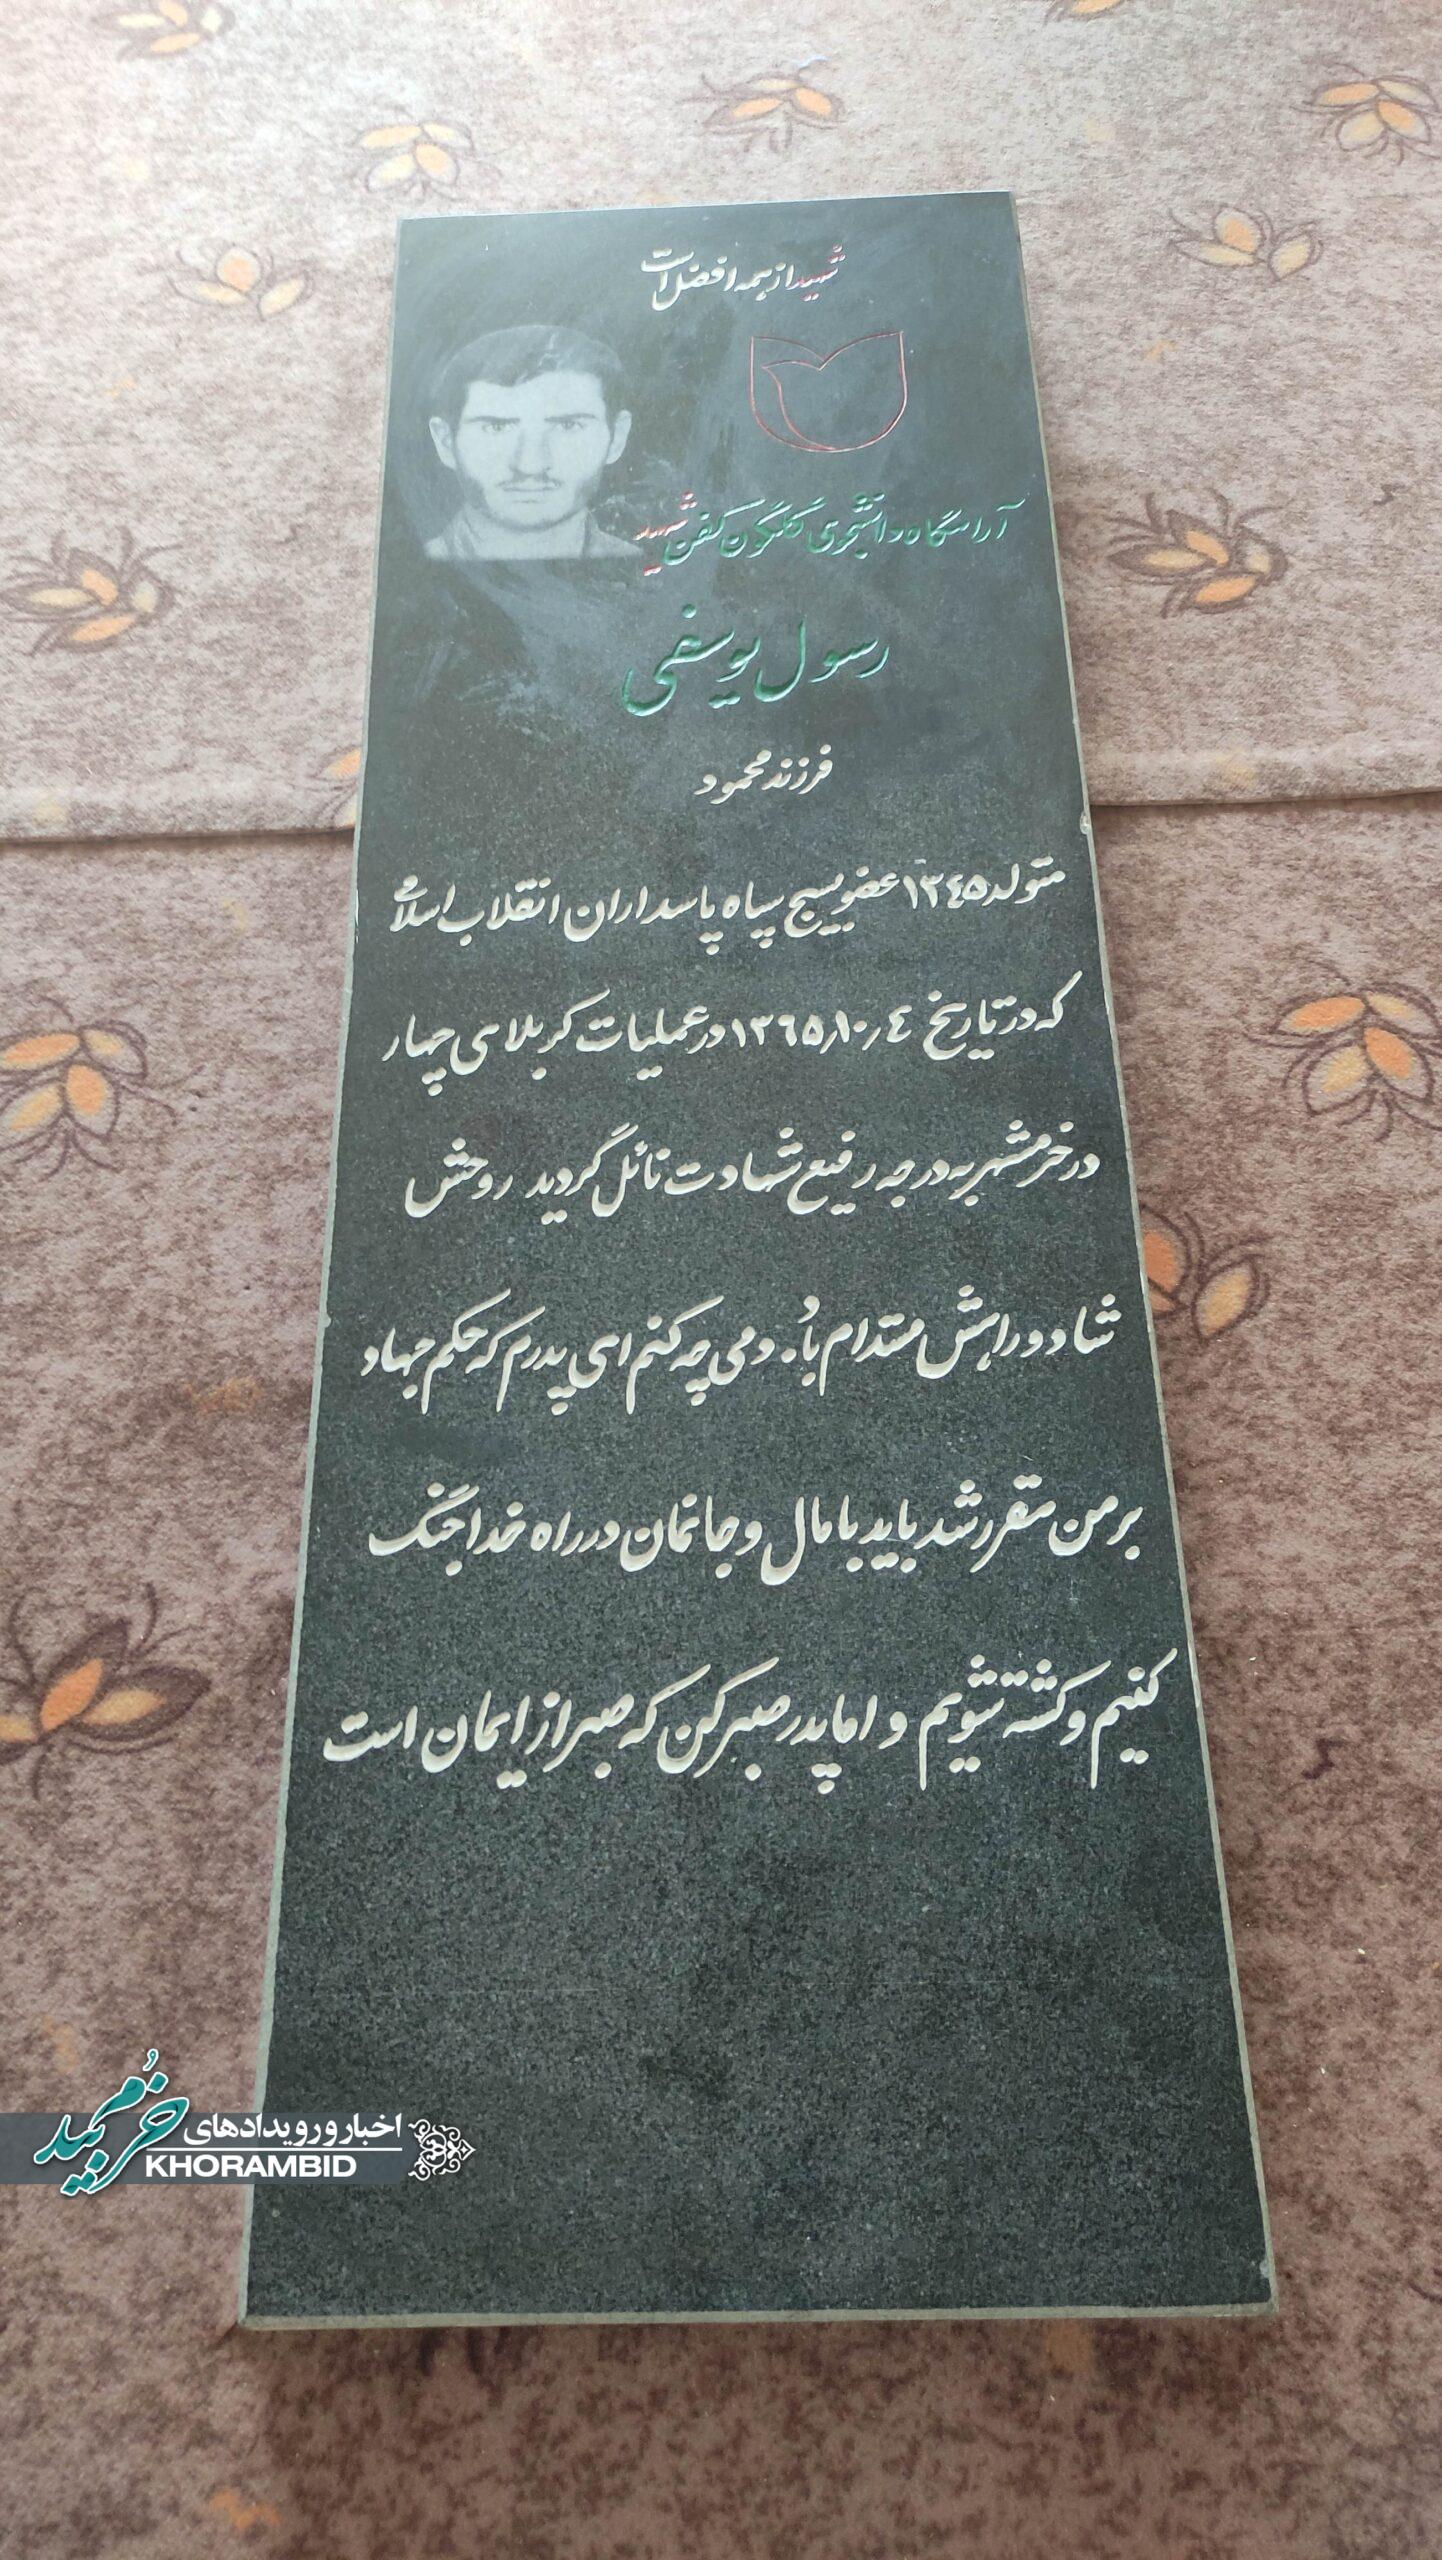 شهید از همه افضل است
آرامگاه دانشجوی گلگون کفن شهید
رسول یوسفی
فرزند محمود
متولد ۱۳٤۵ عضو بسیج سپاه پاسداران انقلاب اسلامی
که در تاریخ ۱۳٦۵٫۱۰٫٤ در عملیات کربلای چهار
در خرمشهر به درجه رفیع شهادت نائل گردید روحش
شاد و راهش مستدام باد. ومی چه کنم ای پدرم که حکم جهاد
بر من مقرر شد باید با مال و جانمان در راه خدا جنگ
کنیم و کشته شویم و اما پدر صبر کن که صبر از ایمان است
اخبار و رویدادهای
خرمبید
KHORAMBID